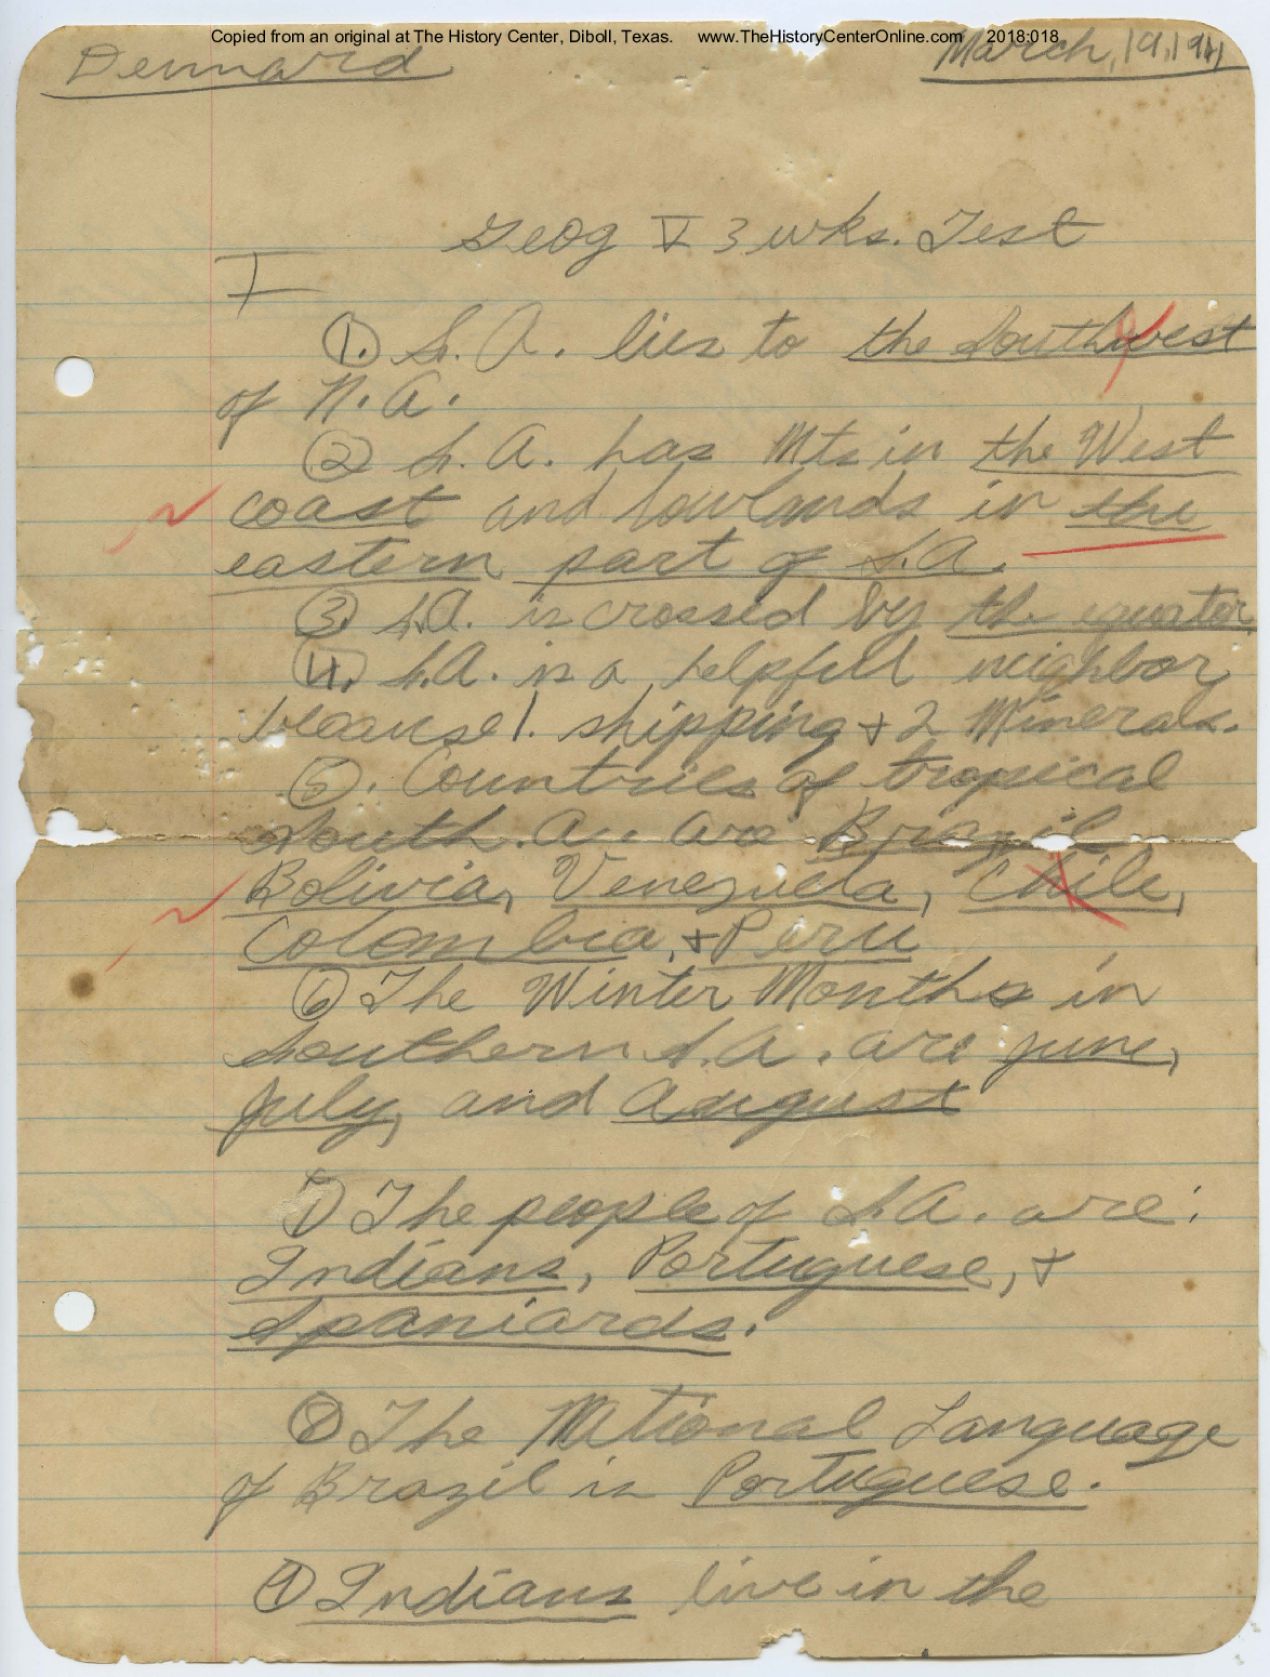 Copied from an original at The History Center, Diboll, Texas. www.TheHistoryCenterOnline.com 2018:018
Dennard March, 19, 1941
Geog V 3 wks. Test
I
1. S. A. lies to the Southwest
of N. A.
2 S. A. has Mts in the West
coast and lowlands in the
eastern part of S. A.
3. S.A. is crossed by the equator.
4. S.A. is a helpful neighbor
because 1. shipping + 2 Minerals.
5. Countries of tropical
South. A. are Brazil
Bolivia, Venezuela, Chile,
Colombia, + Peru
6 The Winter Months in
Southern S.A. are june,
july, and August
7 The people of S.A. are:
Indians, Portuguese, +
Spaniards.
8 The National Language
of Brazil is Portuguese.
9 Indians live in the